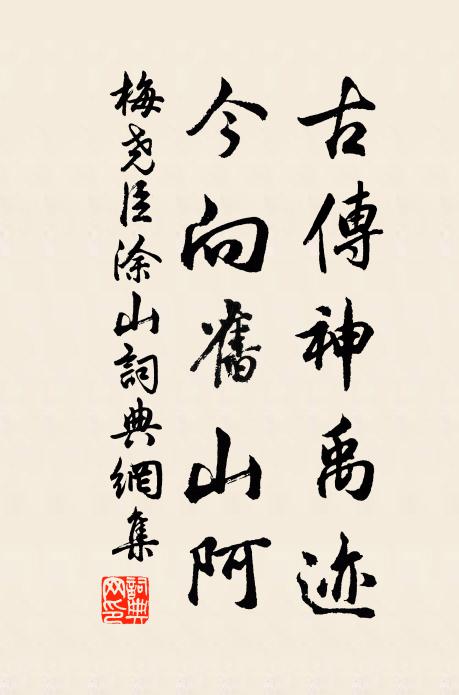 古傳神禹迹
今向舊山阿
梅堯臣涂山詞典網集
詞典網印